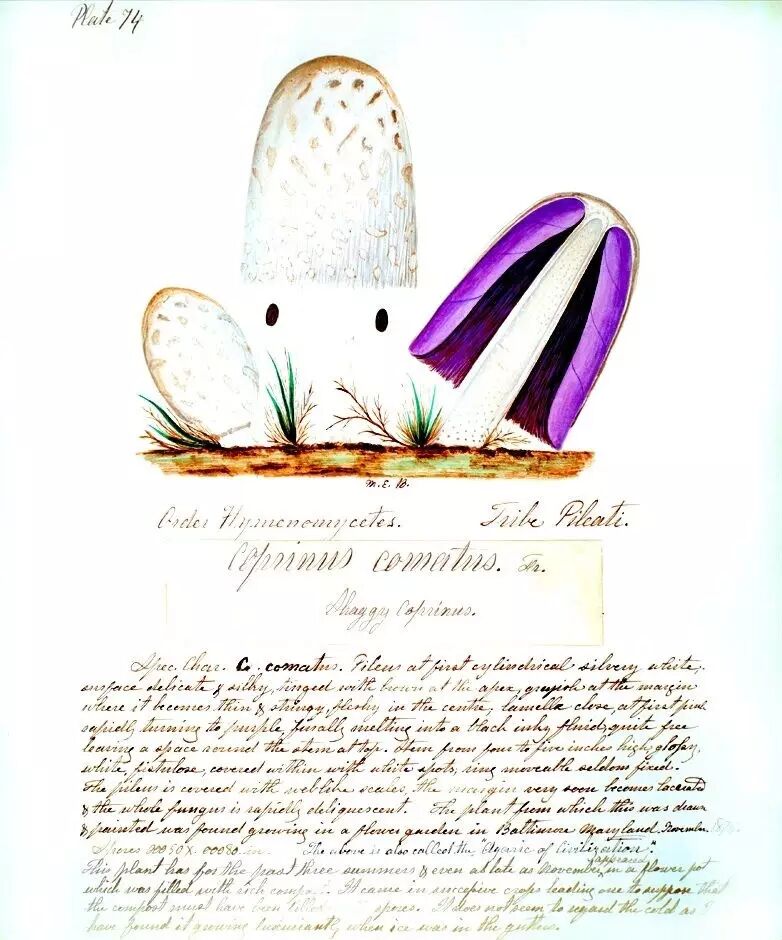 Plate 74
M. E. B.
Order Hymenomycetes. Tribe Pileati.
Coprinus comatus. Fr.
Shaggy Coprinus.
Spec. Char. C. comatus. Pileus at first cylindrical silvery white,
surface delicate & silky, tinged with brown at the apex, greyish at the margin
where it becomes thin & stringy, fleshy in the centre, lamellæ close, at first pink
rapidly turning to purple, finally melting into a black inky fluid, quite free
leaving a space round the stem at top. Stem from four to five inches high, glossy,
white, fistulose, covered within with white spots, ring moveable seldom fixed.
The pileus is covered with weblike scales, the margin very soon becomes lacerated
& the whole fungus is rapidly deliquescent. The plant from which this was drawn
& painted was found growing in a flower garden in Baltimore Maryland. November
Spores .00050 X .00080. in. The above is also called the "Agaric of Civilization".
This plant has for the past three summers & even as late as November, appeared in a flower pot
which was filled with rich compost. It came in successive crops leading one to suppose that
the compost must have been filled spores. It does not seem to regard the cold as I
have found it growing luxuriantly when ice was in the gutters.